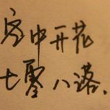 窗中开花
七零八落.